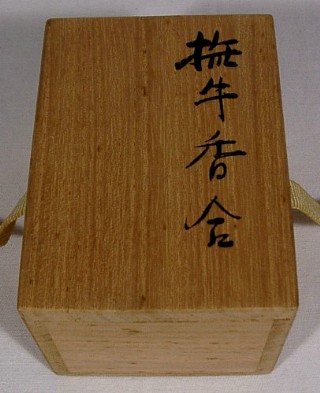 撫牛香合